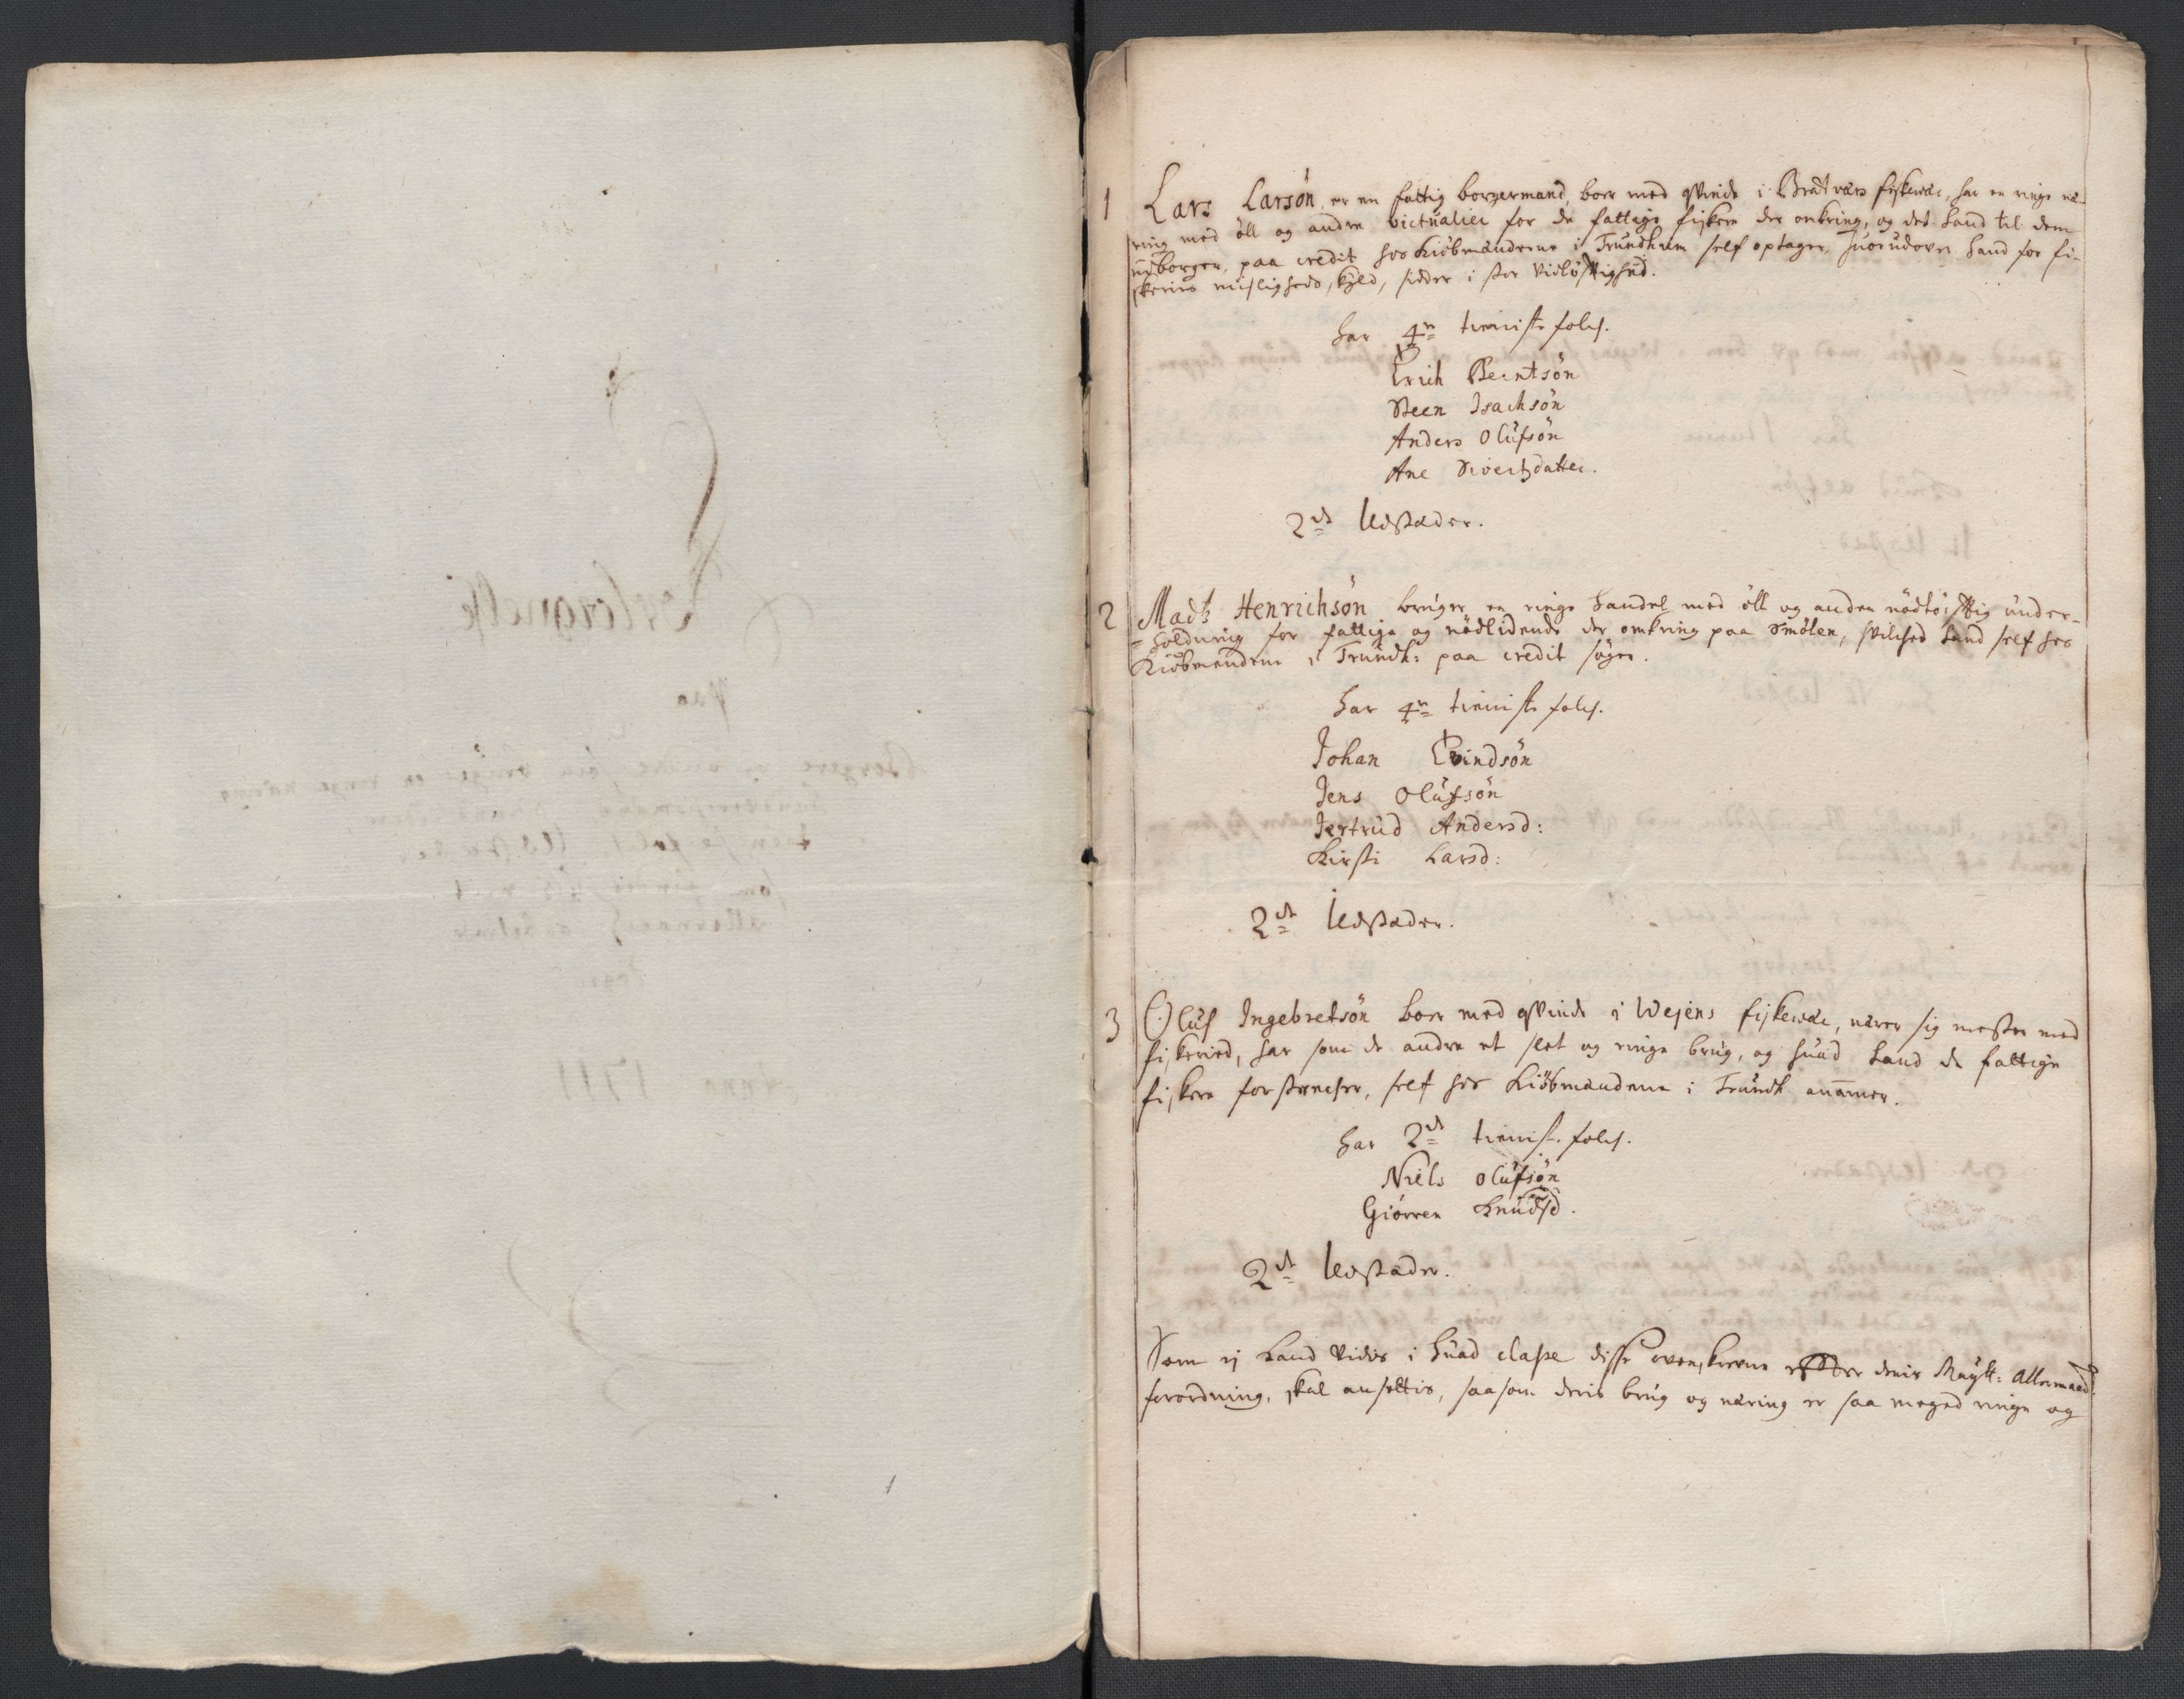 1 Lars Larsön er en fattig borgermand, boer med qvinde i Bratværs fiskevær, har en ringe næ-
ring med öll og andre victualier for de fattige fiskere der omkring, og det hand til dem
udborger, paa credit hos Kiöbmænderne i Trundhiem self optager, huorudover hand for fi-
skeries misligheds skyld, sidder i stor vidlöfftighed.
har 4re tieniste folch.
Erich Berntsön
Steen Isachsön
Anders Olufsön
Ane Sivertzdatter.
2de Udstæder.
2 Madtz Henrichsön bruger en ringe handel med öll og anden nödtörfftig under-
= holdning for fattige og nödlidende der omkring paa Smölen, hvilched hand self hos
Kiöbmændene i Trundh: paa credit söger.
har 4re tieniste folch.
Johan Evindsön
Jens Olufsön
Jertrud Andersd:
Kirsti Larsd:
2de Udstæder.
3 Oluf Ingebretsön boer med qvinde i Wejens fiskevær, nærer sig meste med
fiskeried, har som de andre et slet og ringe brug, og huad hand de fattige
fiskere forstrecher, self hos Kiöbmændene i Trundh anammer.
har 2de tienist. folch.
Niels Olufsön
Giörren Knudsd.
2de Udstæder.
Som ej kand vides i huad classe disse ovenskrevne effter deris Mayst: Allernaad:
forordning, skal ansettis, saasom deris brug og næring er saa meget ringe og